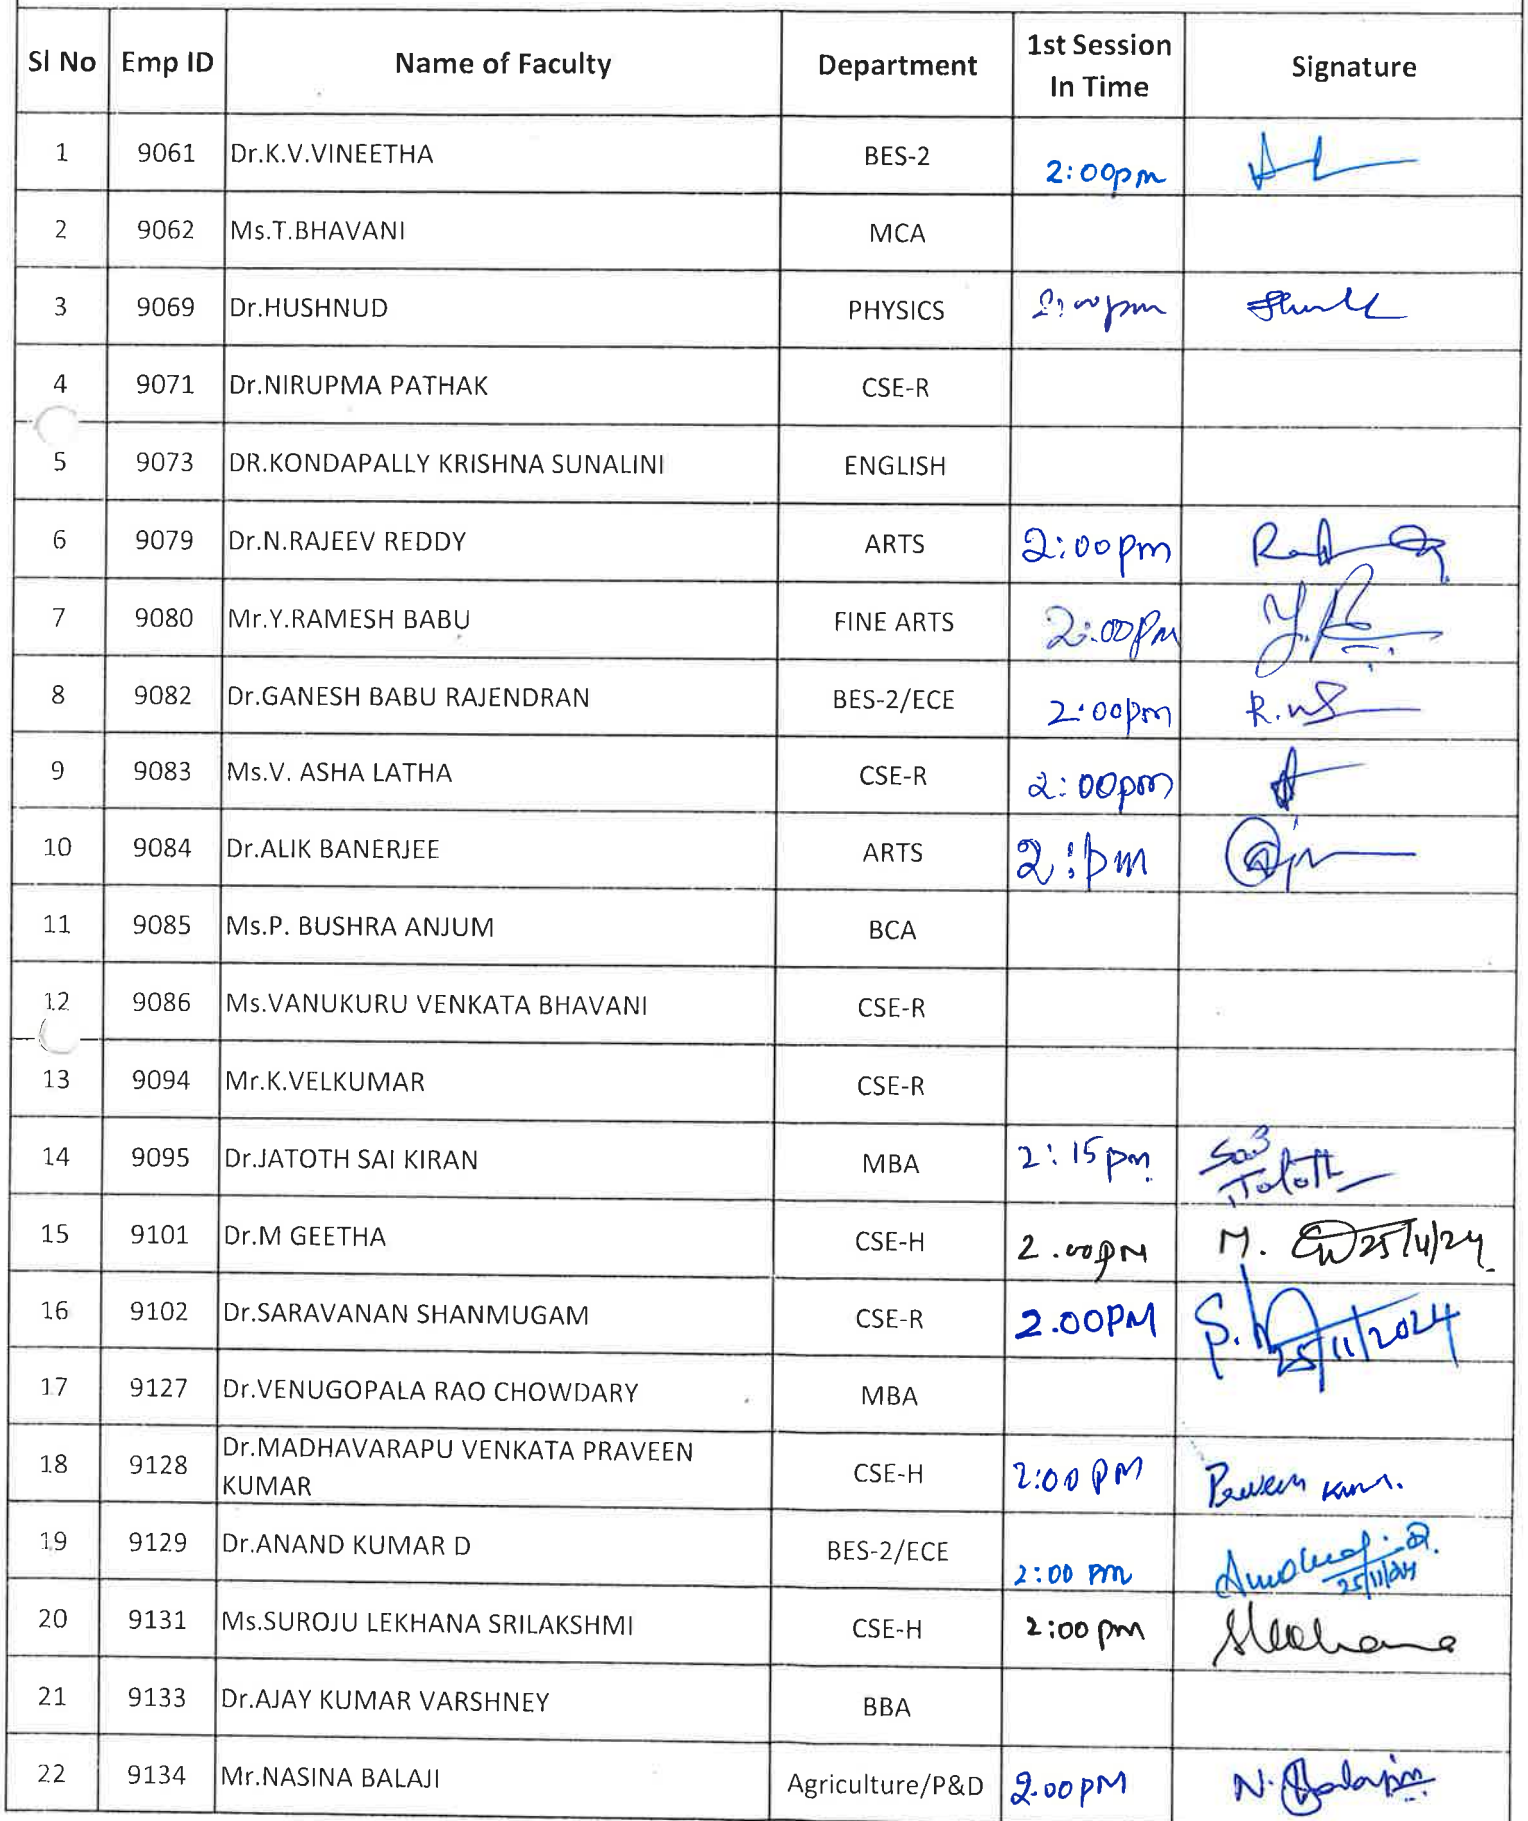 Sl No Emp ID Name of Faculty Department 1st Session In Time Signature
1 9061 Dr.K.V.VINEETHA BES-2 2:00pm
2 9062 Ms.T.BHAVANI MCA
3 9069 Dr.HUSHNUD PHYSICS 2:00pm
4 9071 Dr.NIRUPMA PATHAK CSE-R
5 9073 DR.KONDAPALLY KRISHNA SUNALINI ENGLISH
6 9079 Dr.N.RAJEEV REDDY ARTS 2:00pm
7 9080 Mr.Y.RAMESH BABU FINE ARTS 2:00Pm
8 9082 Dr.GANESH BABU RAJENDRAN BES-2/ECE 2:00pm
9 9083 Ms.V. ASHA LATHA CSE-R 2:00pm
10 9084 Dr.ALIK BANERJEE ARTS 2:pm
11 9085 Ms.P. BUSHRA ANJUM BCA
12 9086 Ms.VANUKURU VENKATA BHAVANI CSE-R
13 9094 Mr.K.VELKUMAR CSE-R
14 9095 Dr.JATOTH SAI KIRAN MBA 2:15pm Sai
Jatoth
15 9101 Dr.M GEETHA CSE-H 2.00PM M. 25/11/24
16 9102 Dr.SARAVANAN SHANMUGAM CSE-R 2.00PM S. 25/11/2024
17 9127 Dr.VENUGOPALA RAO CHOWDARY MBA
18 9128 Dr.MADHAVARAPU VENKATA PRAVEEN
KUMAR CSE-H 2:00 PM Praveen Kumar.
19 9129 Dr.ANAND KUMAR D BES-2/ECE 2:00 pm
25/11/24
20 9131 Ms.SUROJU LEKHANA SRILAKSHMI CSE-H 2:00 pm
21 9133 Dr.AJAY KUMAR VARSHNEY BBA
22 9134 Mr.NASINA BALAJI Agriculture/P&D 2.00PM N. Balaji